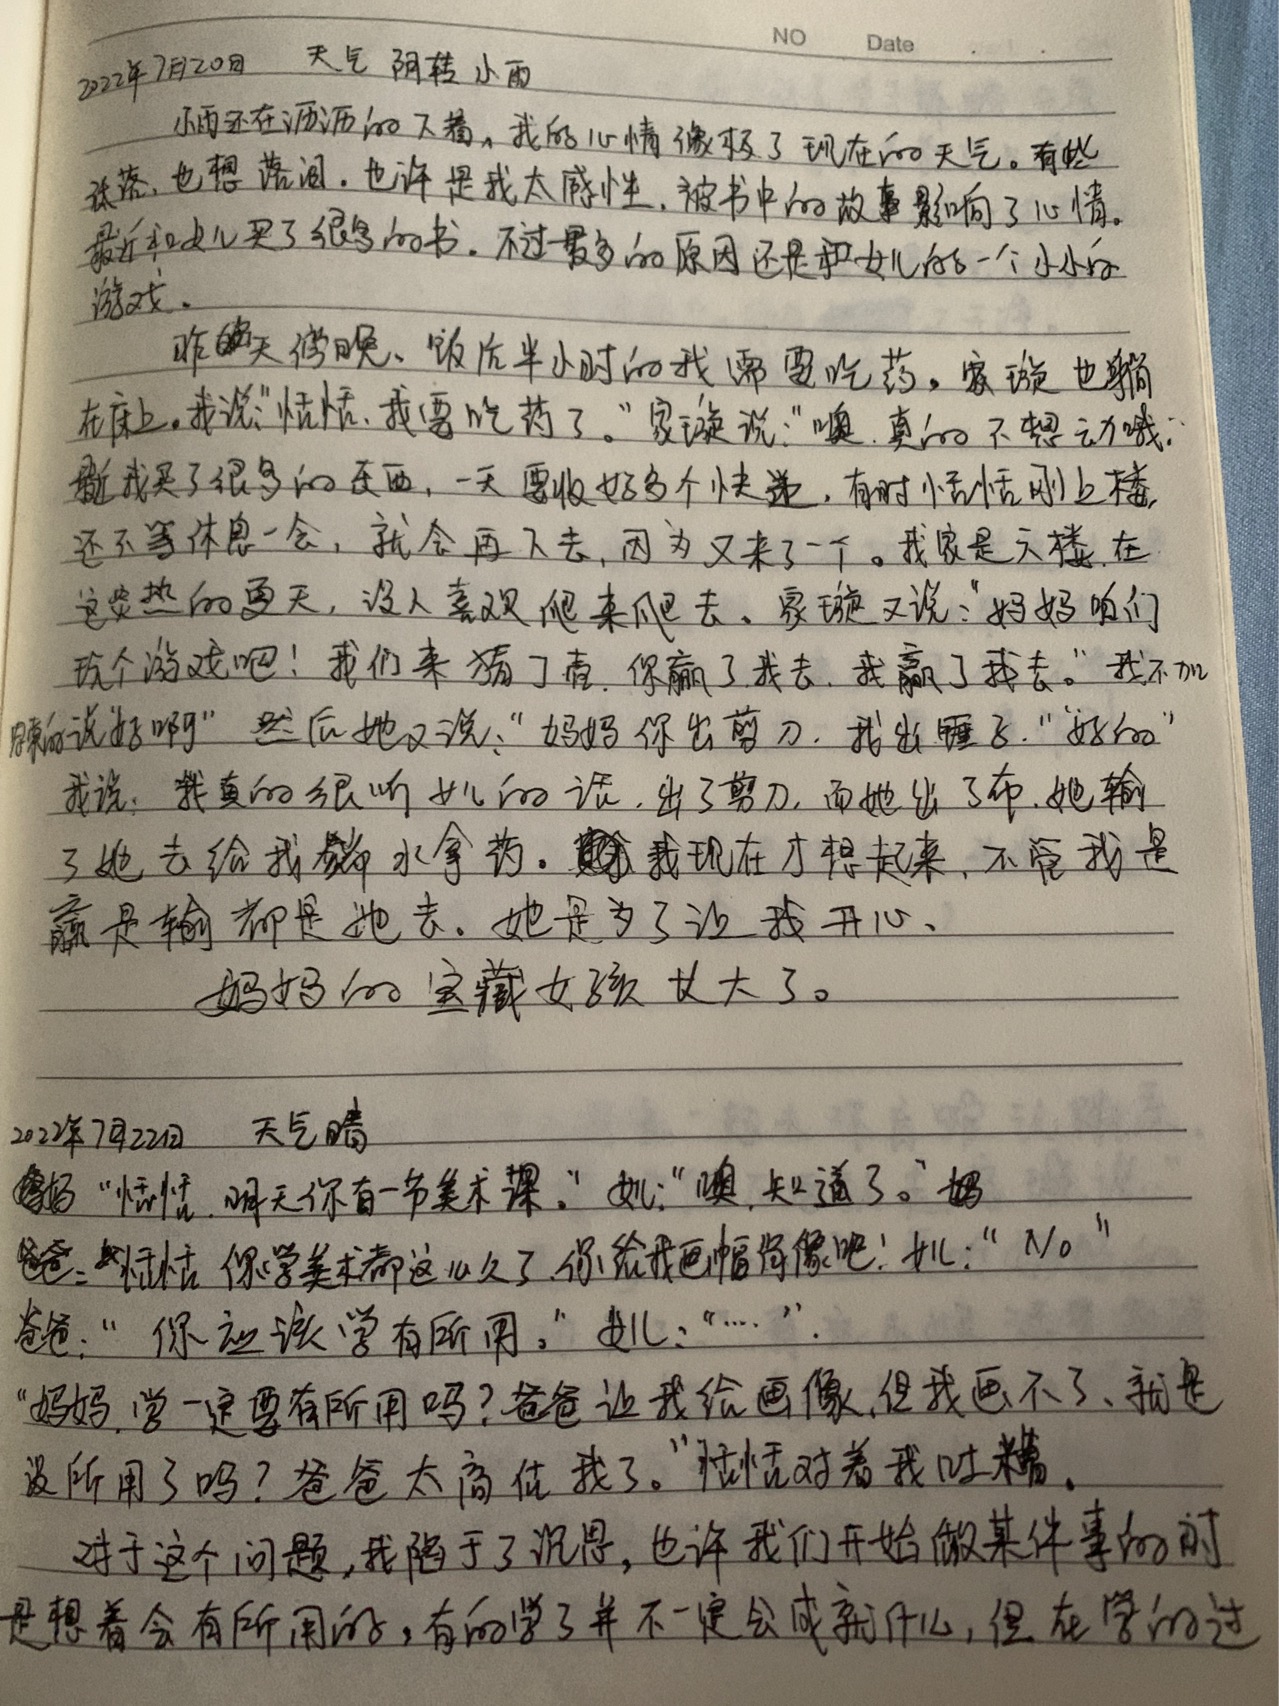 NO Date
2022年7月20日 天气 阴转小雨
小雨还在沥沥的下着、我的心情像极了现在的天气。有些
落、也想落泪。也许是我太感性、被书中的故事影响了心情。
最近和女儿买了很多的书。不过最多的原因还是和女儿的一个小小的
游戏。
昨天傍晚、饭后半小时的我需要吃药。家璇也躺
在床上。我说:"恬恬、我要吃药了。"家璇说:"噢、真的不想动哦。"
最近我买了很多的东西、一天要收好多个快递、有时恬恬刚上楼、
还不等休息一会、就会再下去、因为又来了一个。我家是六楼、在
这炎热的夏天、没人喜欢爬来爬去。家璇又说:"妈妈咱们
玩个游戏吧!我们来猜丁壳、你赢了我去、我赢了我去。"我不加
思索的说"好啊"然后她又说:"妈妈你出剪刀、我出锤子。""好的"
我说、我真的很听女儿的话、出了剪刀、而她出了布、她输
了她去给我端水拿药。我现在才想起来、不管我是
赢是输都是她去。她是为了让我开心、
妈妈的宝藏女孩长大了。
2022年7月22日 天气晴
妈妈"恬恬、明天你有一节美术课。"女儿:"噢、知道了。"妈
爸爸:"恬恬 你学美术都这么久了、你给我画幅肖像吧!女儿:"No"
爸爸:"你应该学有所用。"女儿:"....".
"妈妈、学一定要有所用吗?爸爸让我给画像、但我画不了、就是
没所用了吗?爸爸太高估我了。"恬恬对着我吐糟。
对于这个问题,我陷于了沉思,也许我们开始做某件事的时
是想着会有所用的,有的学了并不一定会成就什么,但在学的过